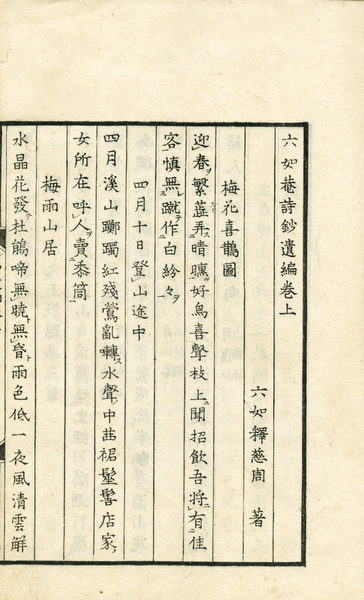 六如菴詩鈔遺編卷上
六如釋慈周 著
梅花喜鵲圖
迎春繁蘂弄晴曛好鳥喜聲枝上聞招飲吾將有佳
容慎無蹴作白紛々
四月十日登山途中
四月溪山躑躅紅殘鶯亂囀水聲中茜裙髽髻店家
女所在呼人賣黍筒
梅雨山居
水晶花發杜鵑啼無曉無昏雨色低一夜風清雲解